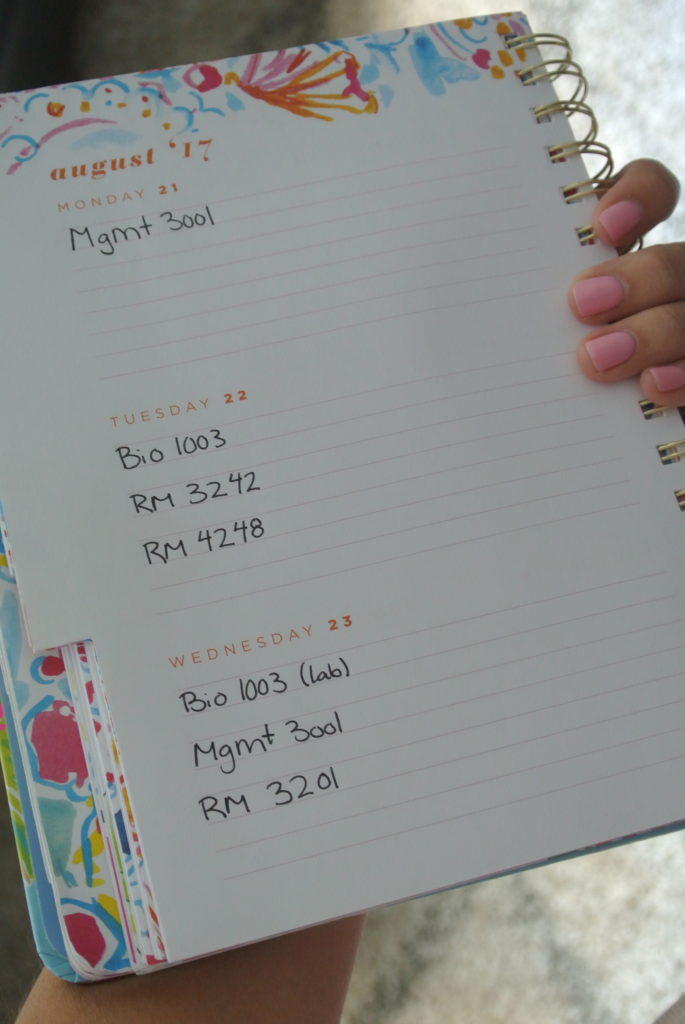 august '17
MONDAY 21
Mgmt 3001
TUESDAY 22
Bio 1003
RM 3242
RM 4248
WEDNESDAY 23
Bio 1003 (lab)
Mgmt 3001
RM 3201